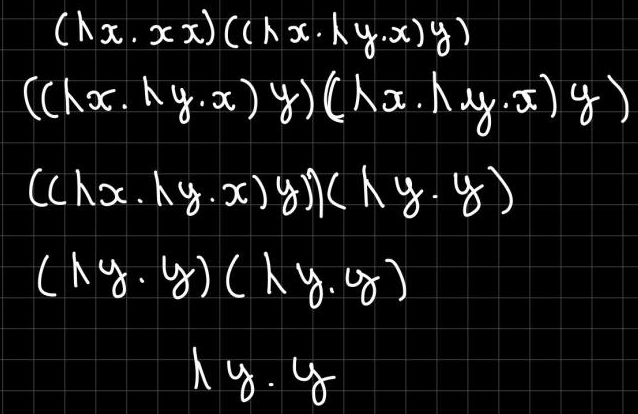 (λx.xx)((λx.λy.x)y)
((λx.λy.x)y)((λx.λy.x)y)
((λx.λy.x)y))(λy.y)
(λy.y)(λy.y)
λy.y